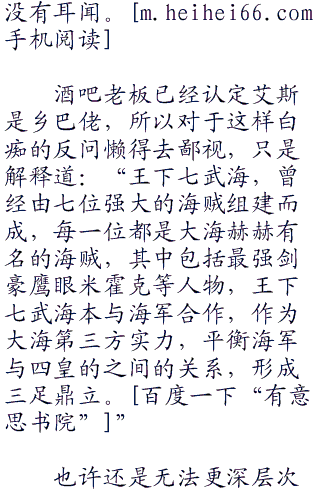 没有耳闻。[m.heihei66.com
手机阅读]
酒吧老板已经认定艾斯
是乡巴佬，所以对于这样白
痴的反问懒得去鄙视，只是
解释道：“王下七武海，曾
经由七位强大的海贼组建而
成，每一位都是大海赫赫有
名的海贼，其中包括最强剑
豪鹰眼米霍克等人物，王下
七武海本与海军合作，作为
大海第三方实力，平衡海军
与四皇的之间的关系，形成
三足鼎立。[百度一下“有意
思书院”]”
也许还是无法更深层次